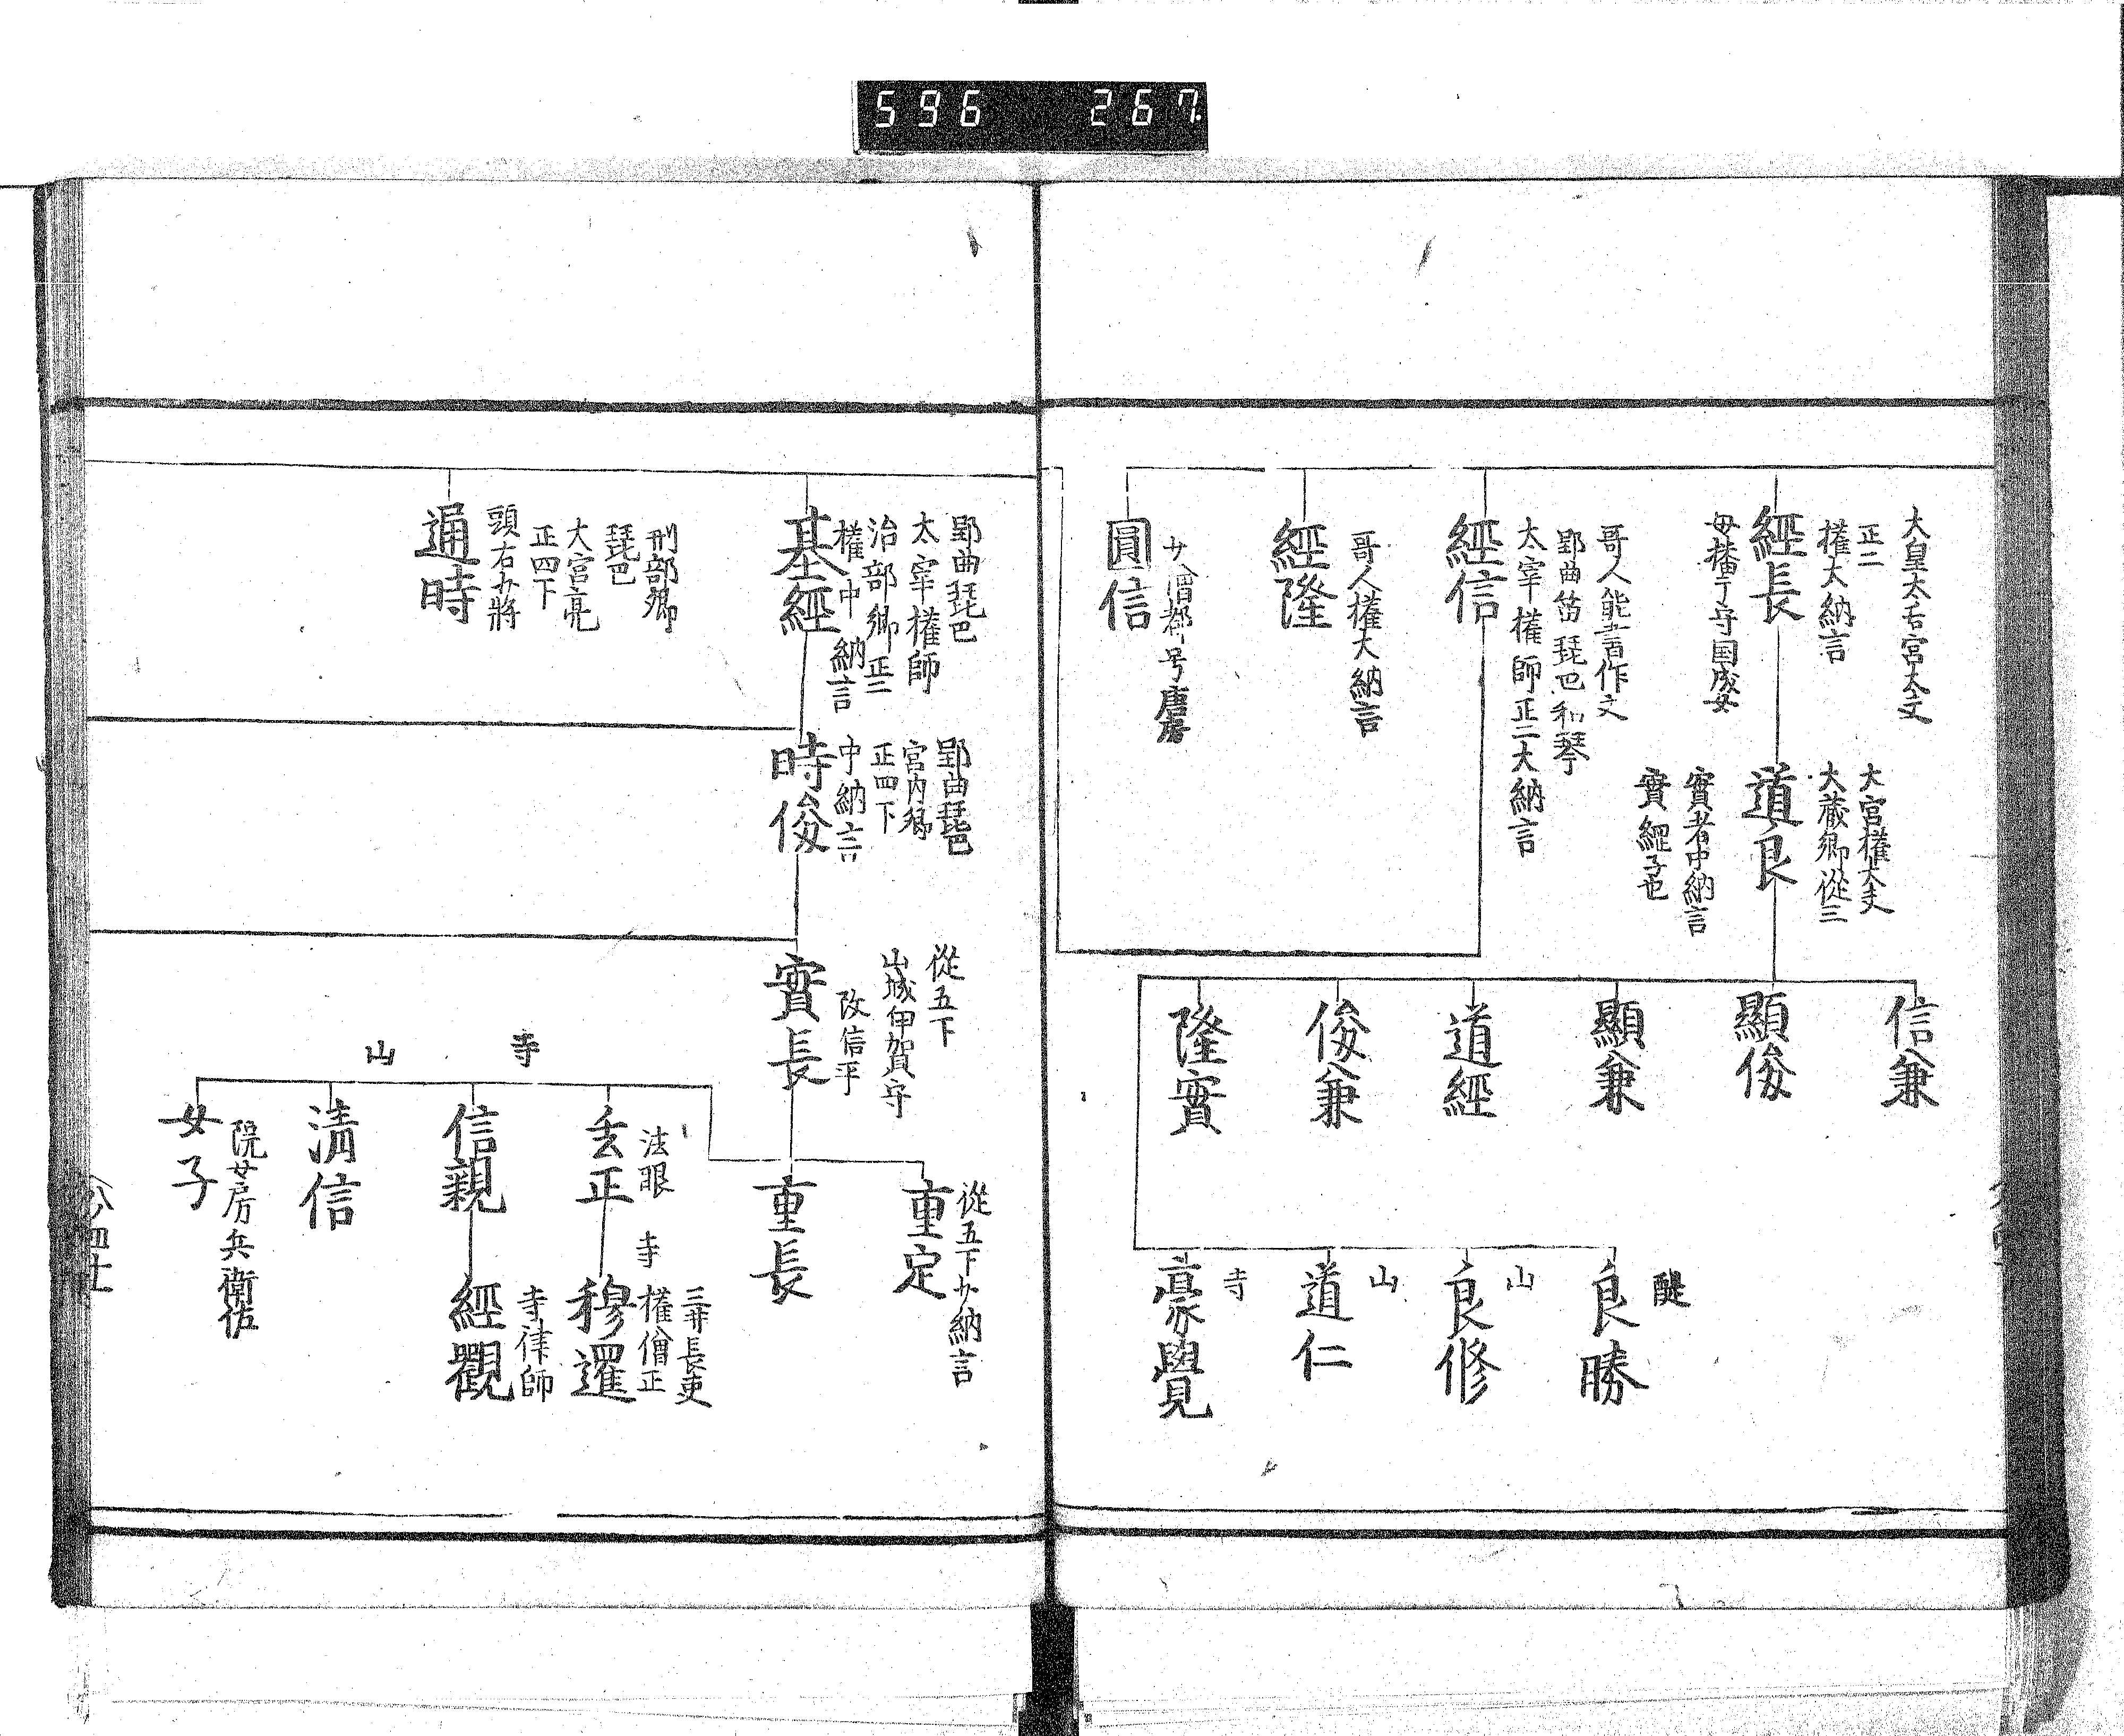 596 267
大皇太后宮太丈
正二
權大納言
經長
母播丁守国成女
大宮權大夫
大蔵卿從三
道良
實者中納言
實經子也
信兼
顯俊
顯兼
道經
俊兼
隆實
醍
良勝
山
良修
山
道仁
寺
豪覺
哥人能書作文
郢曲笛琵巴和琴
太宰權師正二大納言
經信
哥人權大納言
經隆
少僧都号唐房
圓信
郢曲琵巴
太宰權師
治部卿正二
權中納言
基經
郢曲琵巴
宮内卿
正四下
中納言
時俊
從五下
山城伊賀守
改信平
實長
從五下少納言
重定
重長
法眼
寺
正
三井長吏
權僧正
穆暹
寺
信親
寺律師
經觀
山
清信
院女房兵衛佐
女子
刑部卿
琵巴
大宮亮
正四下
頭右少將
通時